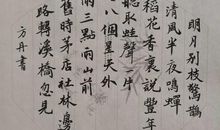 明月别枝驚鵲
清風半夜鳴蟬
稻花香裏說豐年
聽取蛙聲
八個星天外
兩三點雨山前
舊時茅店社林邊
路轉溪橋忽見
方丹書